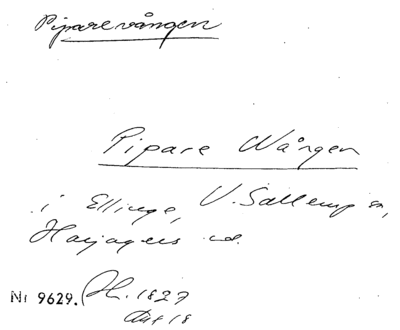 Piparevången
Pipare Wången
i Ellinge, V. Sallerup sn,
Harjagers hd.
Nr 9629. 1827
Akt 18